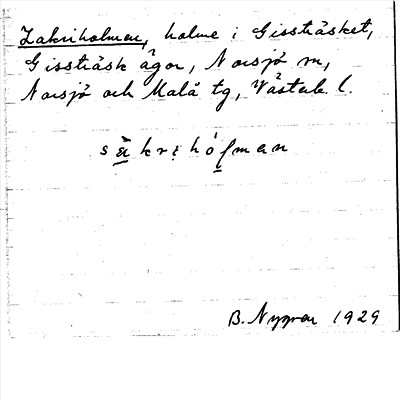 Zakriholmen, holme i Gissträsket,
Gissträsk ägor, Norsjö sn,
Norsjö och Malå tg, Västerb. l.
sàkrihólman
B. Nygren 1929